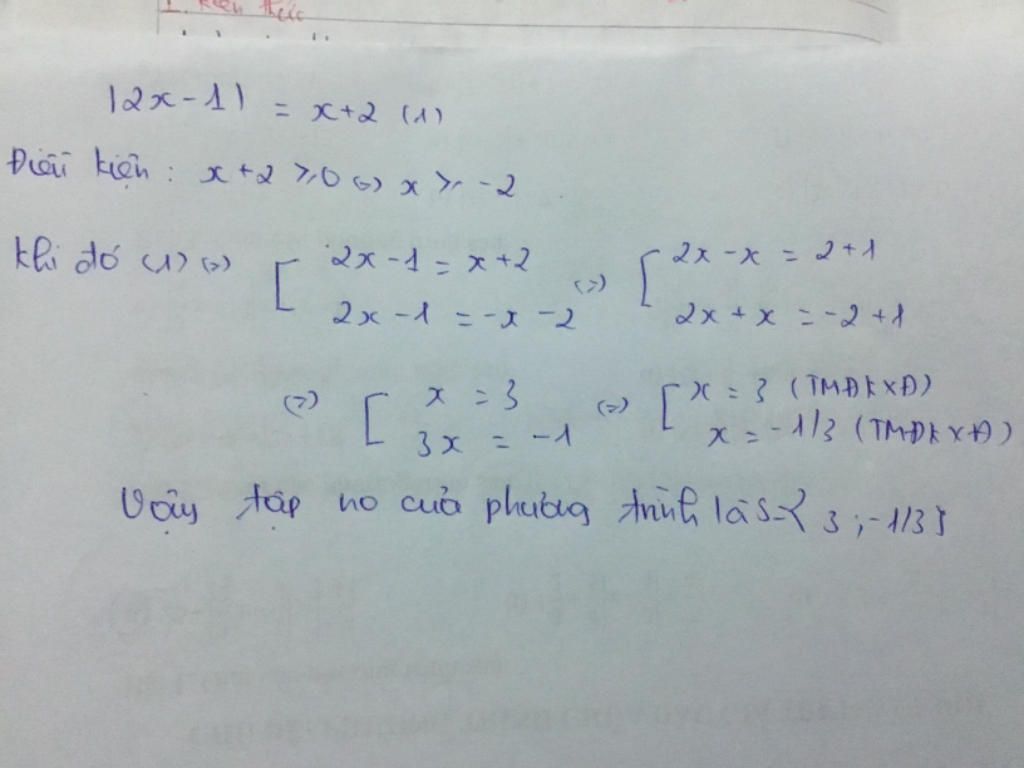 I. Kiến thức
|2x - 1| = x + 2 (1)
Điều kiện : x + 2 ≥ 0 (=) x ≥ -2
Khi đó (1) (=) [ 2x - 1 = x + 2 (=) [ 2x - x = 2 + 1
2x - 1 = -x - 2 2x + x = -2 + 1
(=) [ x = 3 (=) [ x = 3 (TMĐKXĐ)
3x = -1 x = -1/3 (TMĐKXĐ)
Vậy tập no của phương trình là S = { 3 ; -1/3 }